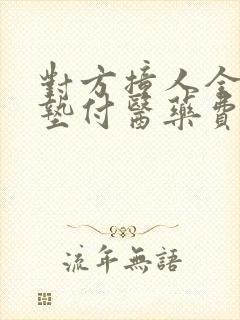 對方撞人全
墊付醫藥費
流年無語